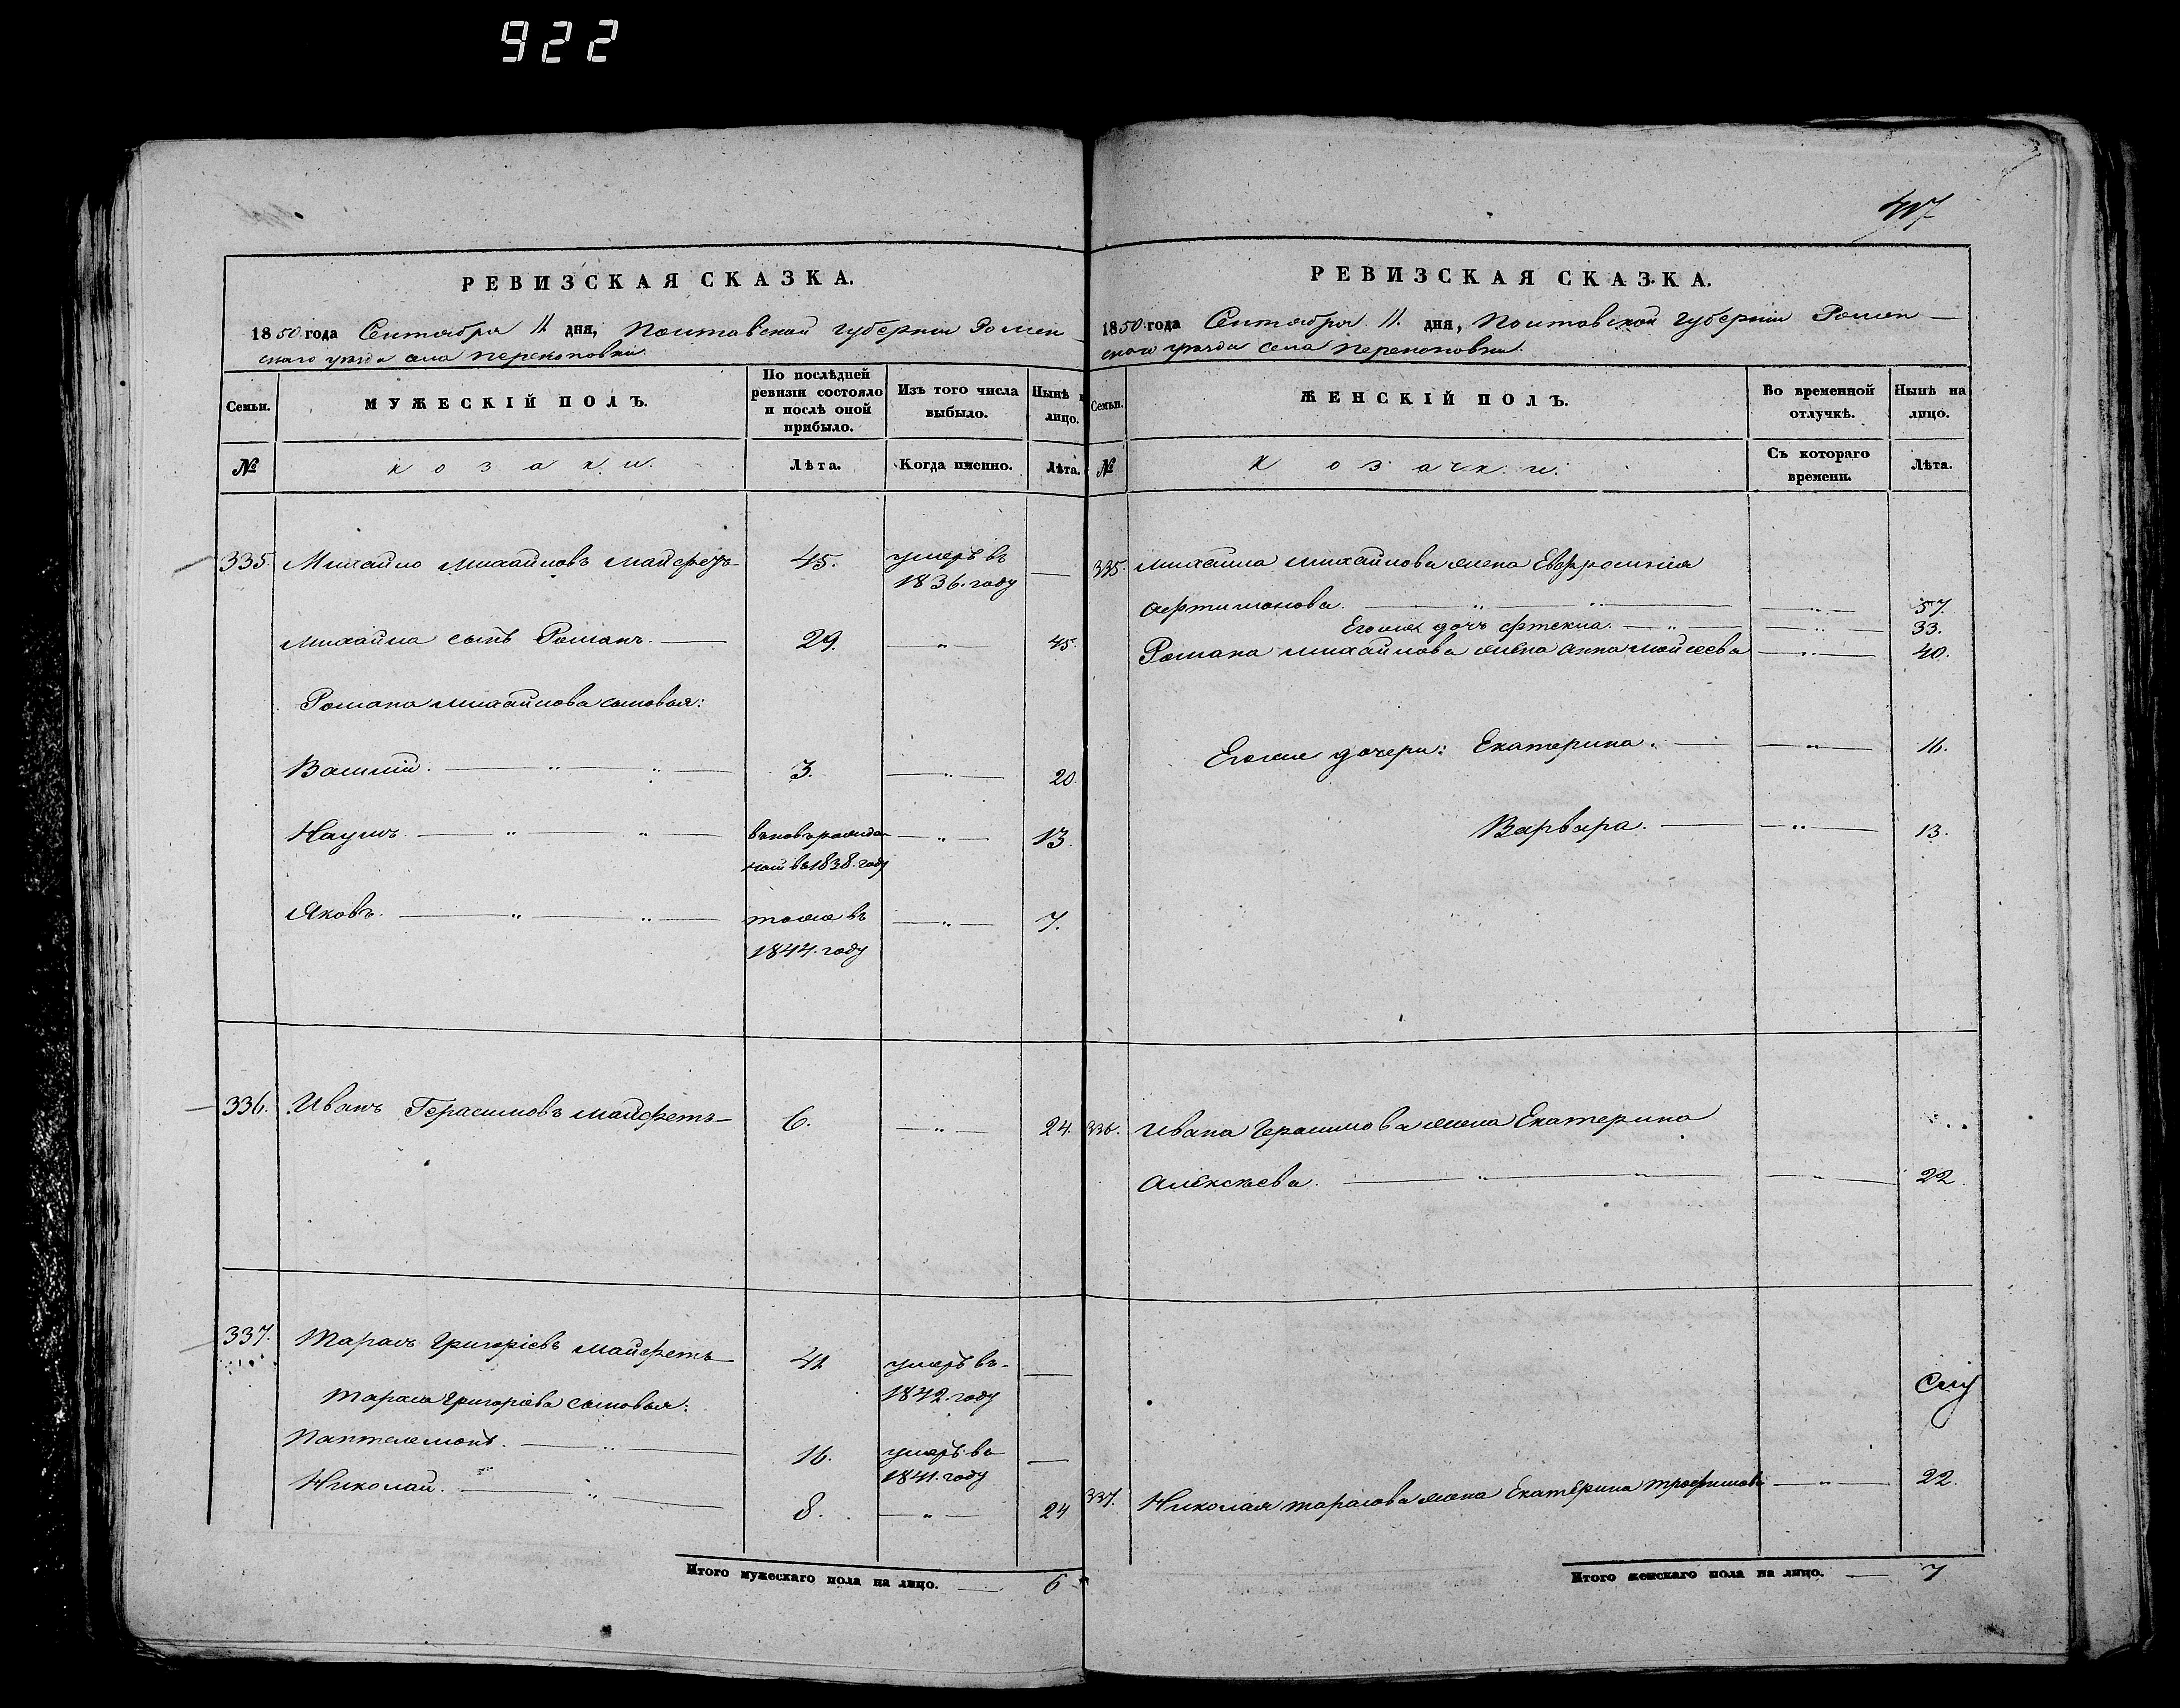 922
417
РЕВИЗСКАЯ СКАЗКА.
1850 года Сентября 11 дня, Полтавской губернии Ромен-
скаго уезда села Перекоповки
Семьи.
МУЖЕСКІЙ ПОЛЪ.
По послѣдней ревизіи состояло и послѣ оной прибыло.
Изъ того числа выбыло.
Нынѣ на лицо.
№
козаки.
Лѣта.
Когда именно.
Лѣта.
335. Михайло Михайловъ Майфетъ 45. умеръ въ —
1836. году
Михайла сынъ Романъ. — 29. — „ — 45.
Романа Михайлова сыновья:
Василій. — „ — „ — 3. — „ — 20.
Наумъ. — „ — „ — вновърожде — „ — 13.
ный в 1838. году
Яковъ. — „ — „ — тоже въ — „ — 7.
1844. году
336. Иванъ Герасимовъ Майфетъ 6. — „ — 24.
337. Тарасъ Григоріевъ Майфетъ 41 умеръ въ —
1842. году
Тараса Григоріева сыновья:
Пантелемонъ. — „ — 16. умеръ въ —
1841. году
Николай. — „ — 8. — „ — 24
Итого мужескаго пола на лицо. — 6
РЕВИЗСКАЯ СКАЗКА.
1850 года Сентября 11. дня, Полтавской Губерніи Ромен-
скаго уезда села Перекоповки.
Семьи.
ЖЕНСКІЙ ПОЛЪ.
Во временной отлучкѣ.
Нынѣ на лицо.
№
козачки.
Съ котораго времени.
Лѣта.
335. Михайла Михайлова жена Евфросинія
Афтимонова. — „ — „ — — „ — 57.
Егоже дочь Фтекла. — „ — — „ — 33.
Романа Михайлова жена Анна Мойсеева — „ — 40.
Егоже дочери: Екатерина. — — „ — 16.
Варвара. — — „ — 13.
336. Ивана Герасимова жена Екатерина
Алексеева. — „ — „ — — „ — 22.
337. Николая Тарасова жена Екатерина Трофимова — „ — 22.
Итого женскаго пола на лицо. — 7